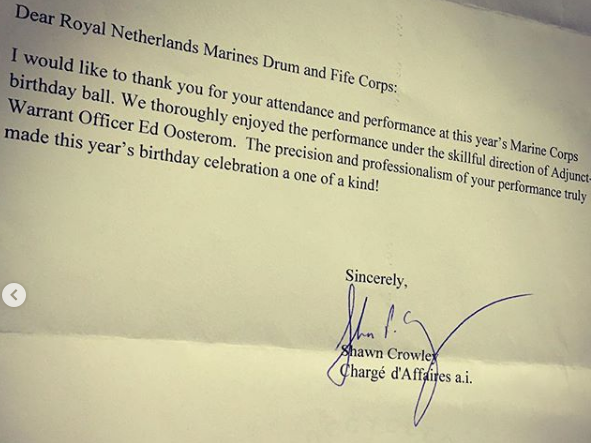 Dear Royal Netherlands Marines Drum and Fife Corps:
I would like to thank you for your attendance and performance at this year's Marine Corps
birthday ball. We thoroughly enjoyed the performance under the skillful direction of Adjunct-
Warrant Officer Ed Oosterom. The precision and professionalism of your performance truly
made this year's birthday celebration a one of a kind!
Sincerely,
Shawn Crowley
Chargé d'Affaires a.i.